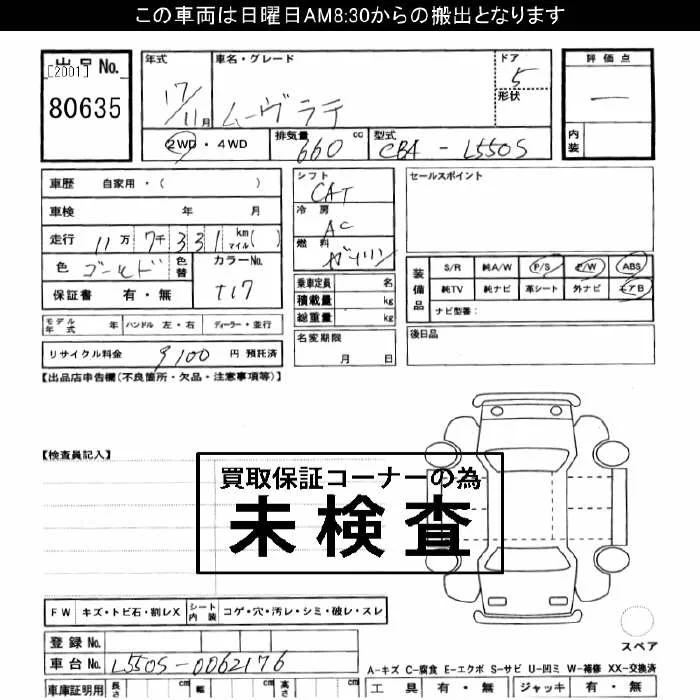 この車両は日曜日AM8:30からの搬出となります
出品No.
[2001]
80635
年式
17/11月
車名・グレード
ムーヴラテ
ドア
5
形状
評価点
—
内装
2WD・4WD
排気量 660 cc
型式 CBA - L550S
車歴 自家用・( )
車検 年 月
走行 11万7千331 km マイル( )
色 ゴールド
色替
カラーNo.
T17
保証書 有・無
シフト
CAT
冷房
AC
燃料
ガソリン
乗車定員 名
積載量 kg
総重量 kg
セールスポイント
装備品
S/R 純A/W P/S P/W ABS
純TV 純ナビ 革シート 外ナビ エアB
ナビ型番:
モデル年式 年 ハンドル 左・右 ディーラー・並行
名変期限
月 日
後日品
リサイクル料金 9100 円 預託済
【出品店申告欄(不良箇所・欠品・注意事項等)】
【検査員記入】
買取保証コーナーの為
未検査
FW キズ・トビ石・割レX シート内装 コゲ・穴・汚レ・シミ・破レ・スレ
スペア
登録No.
車台No. L550S-0062176
A-キズ C-腐食 E-エクボ S-サビ U-凹ミ W-補修 XX-交換済
車庫証明用 長さ cm 幅 cm 高さ cm
工具 有・無 ジャッキ 有・無